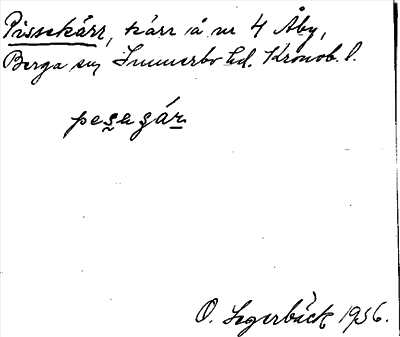 Pissekärr, kärr å nr 4 Åby,
Berga sn, Sunnerbo hd. Kronob. l.
pesagár
O. Segerbäck 1936.